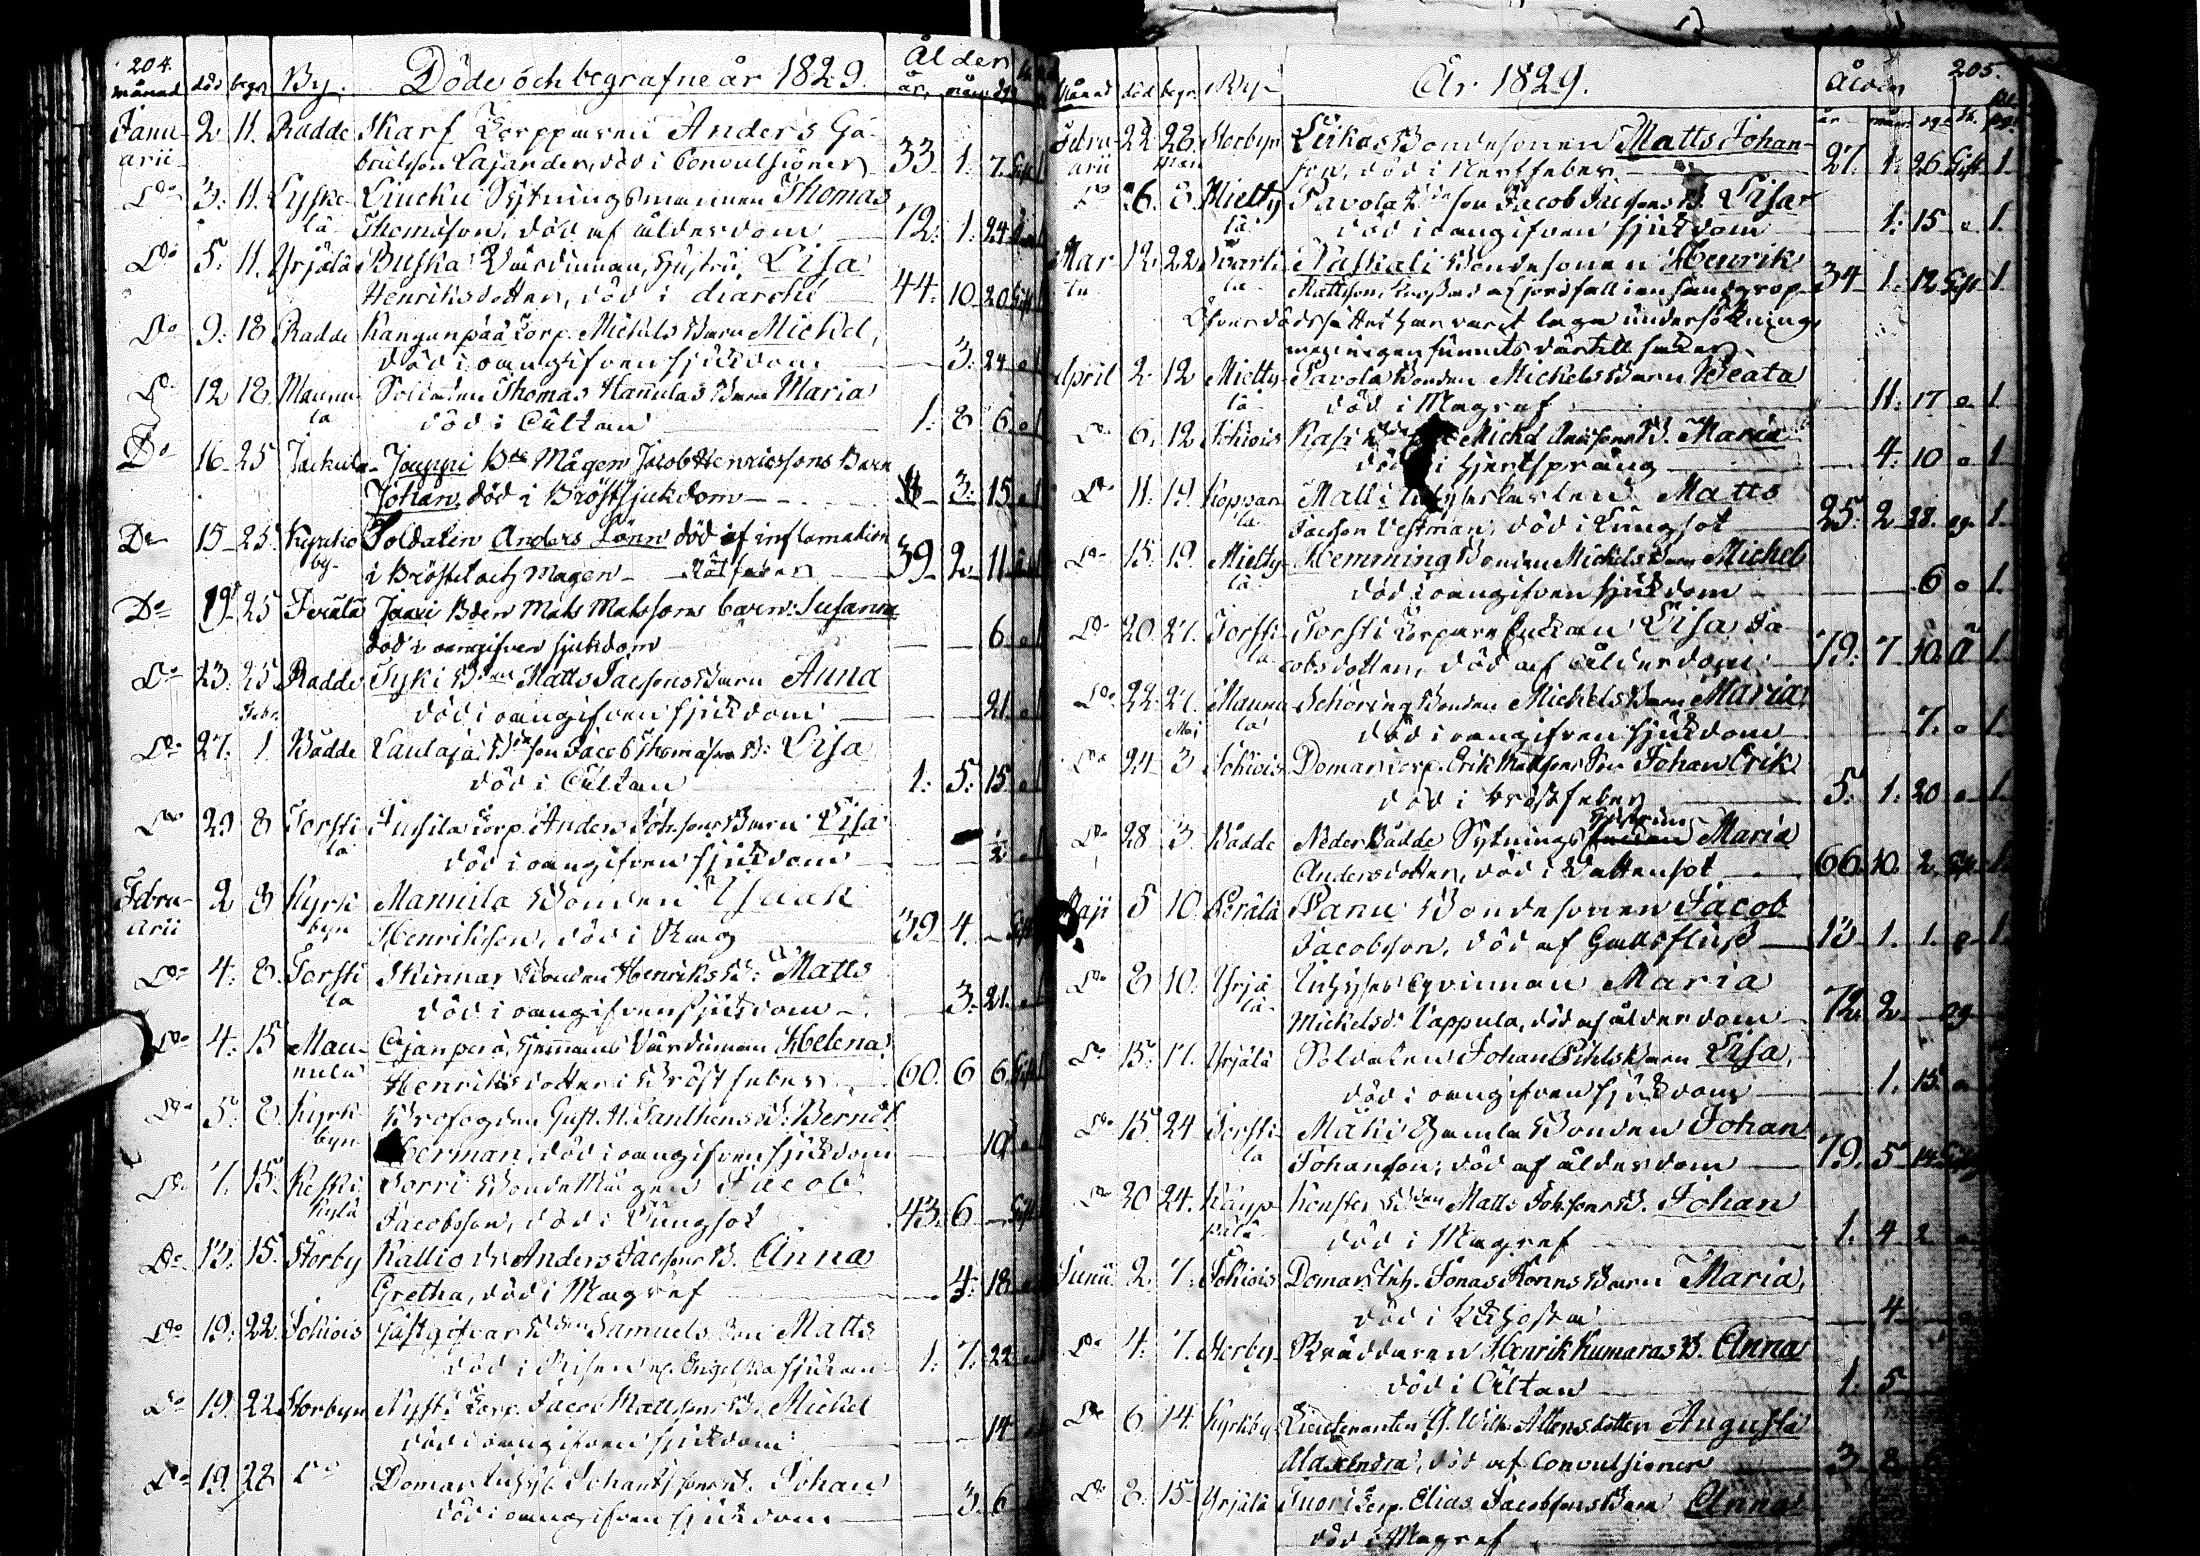 204.
månad död begr. By. Döde och begrafne år 1829. Ålder
år. mån. dgr
Janu- 2 11. Radde Skarf Torpparen Anders Ga-
arii brielsson Lajander, död i Convulsioner 33 1. 7. Gift 1
Do 3. 11. Lyske- Liucku Sytningsmannen Thomas
lä Thomasson, död af ålderdom 72. 1. 24
Do 5. 11. Yrjälä Buska Värdinnan, Hustru Lisa
Henriksdotter, död i diarché 44. 10 20 Gift
Do 9. 18 Radde Kanganpää Torp. Mickels Barn Mickel,
död i oangifven sjukdom 3. 24 o
Do 12 18. Mannu- Soldaten Thomas Hannulas Barn Maria
la död i Ältan 1. 8 6 o
Do 16 25 Jackula Jouppi Bds Mågen Jacob Henricssons Barn
Johan, död i Bröstsjukdom 3. 15 o
Do 15 25. Kyrko Soldaten Anders Lönn död af inflamation
by i Bröstet och Magen Rötfeber 39 2 11
Do 19 25 Perälä Jaari Bden Mats Matssons barn: Susanna
död i oangifven sjukdom 6 o
Do 23. 25 Radde Tyki Bden Matts Jacssons Barn Anna
död i oangifven sjukdom 21. o
Febr.
Do 27. 1 Bådde Laulaja Bdeson Jacob Thomassons B: Lisa
död i Ältan 1. 5. 15 o
Do 29 8 Torsti Jussila Torp. Anders Johssons Barn Lisa
la död i oangifven sjukdom ½ o
Febru- 2 8 Kyrk Mannila Bonden Isaak
arii byn Henriksson, död i 39 4. Gift
Do 4. 8. Torsti Skinnar Bonden Henriks B: Matts
la död i oangifven sjukdom 3. 21. o
Do 4. 15 Man- Ojanperä Hemmans Värdinnan Helena
nula Henriksdotter i Bröstfeber 60. 6 6. Gift
Do 5. 8. Kyrk Brofogden Gust. H. Santhens B: Berndt
byn Herman, död i oangifven sjukdom 19 o
Do 7. 15. Keski Sorri Bonde Mågen Jacob
kylä Jacobsson, död i Lungsot 43. 6 Gift
Do 13. 15. Storby Kallio Anders Jacssons B. Anna
Gretha, död i Magref 4. 18 o
Do 19. 22. Jokiois Gästgifvar Bden Samuels Matts
död i Risen el. Engelska sjukan 1. 7. 22
Do 19. 22. Storbyn Nysti Torp. Jacob Mattssons B. Mickel
död i oangifven sjukdom 14
Do 19 22 Do Domar Inhys. Johan B. Johan
död i oangifven sjukdom 3. 6
205.
Månad död begr. By År 1829. Ålder
år mån. dgr
Febru- 22. 22. Storbyn Leikas Bondesonen Matts Johans-
arii Mars son, död i Nervfeber 27. 1. 26 Gift 1.
Do 26. 8. Mietty Pavola Bdeson Jacob Jacssons B. Lisa
lä död i oangifven sjukdom 1. 15 o 1.
Mar- 12. 22 Paskali Bondesonen Henrik
tii la Mattsson, krossad af jordfall i en sandgrop 34 1. 12 Gift 1
Öfver dödssättet har varit laga undersökning
men ingen funnits dertill saker
April 2 12 Mietty- Pavola Bonden Mickels Barn Beata
lä död i Magref 11. 17 o 1.
Do 6. 12 Jokiois Rasi Mickel B. Maria
död i Hjertsprång 4. 10 o 1
Do 11. 19. Koppan- Malli Inhyseskarlen Matts
la Jacsson Vestman, död i Lungsot 25. 2 28. og. 1.
Do 15. 19. Mietty- Hemming Bonden Mickels Barn Mickel
lä död i oangifven sjukdom 6 o 1.
Do 20. 27. Torsti- Torsti Torpare Enckan Lisa Ja-
la cobsdotter, död af ålderdom 79. 7 10 Ä 1.
Do 22. 27. Mannu Schöring Bonden Mickels Barn Maria
Maj la död i oangifven sjukdom 7. o 1.
Do 24. 3 Jokiois Domar Torp. Erik Mattssons Son Johan Erik
död i bröstfeber 5. 1. 20 o 1.
Do 28 3. Bådde Neder Bådde Sytnings Hustrun Maria
Andersdotter, död i Vattensot 66. 10. 2. Gift
Maji 5 10. Perälä Panu Bondesonen Jacob
Jacobsson, död af Gallsfluss 13 1. 1. o 1.
Do 8 10. Yrjä Inhyses qvinnan Maria
lä Mickelsdr Cappula, död af ålderdom 72. 2 og
Do 15. 17. Yrjälä Soldaten Johan Pihls Barn Lisa,
död i oangifven sjukdom 1. 15. o
Do 15. 24 Torsti- Mäki Gamla Bonden Johan
la Johansson, död af ålderdom 79. 5 14. Gift
Do 20 24. Kaup- Konster Bden Matts Johssons B. Johan
pilä död i Magref 1. 4 2
Junii 2 7. Jokiois Domar Inh. Jonas Korins Barn Maria,
död i Kikhosta 4
Do 4. 7. Storby Skräddaren Henrik Kumaras B. Anna
död i Ältan 1. 5
Do 6 14. Kyrkby Lieutenanten G. Wilh. Aktens dotter Augusta
Alaxandra, död af Convulsioner 3 8
Do 8. 15 Yrjälä Juori Torp. Elias Jacobssons Barn Anna
död i Magref